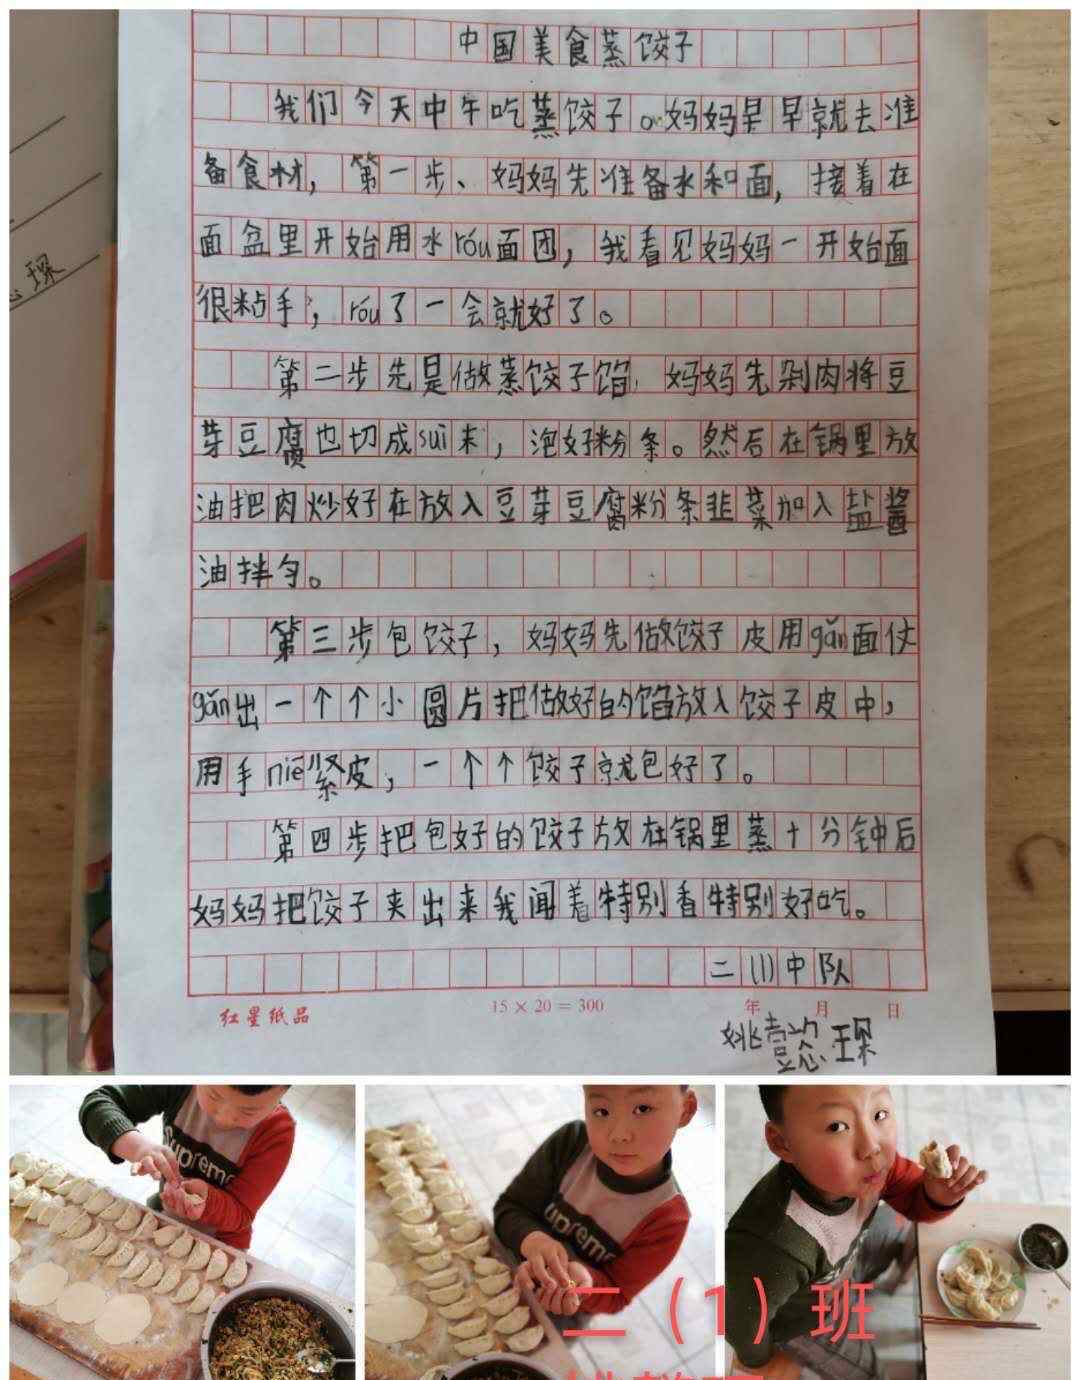 中国美食蒸饺子
我们今天中午吃蒸饺子。妈妈早早就去准
备食材，第一步、妈妈先准备水和面，接着在
面盆里开始用水róu面团，我看见妈妈一开始面
很粘手，róu了一会就好了。
第二步先是做蒸饺子馅，妈妈先剁肉将豆
芽豆腐也切成suì末，泡好粉条。然后在锅里放
油把肉炒好在放入豆芽豆腐粉条韭菜加入盐酱
油拌匀。
第三步包饺子，妈妈先做饺子皮用gǎn面仗
gǎn出一个个小圆片把做好的馅放入饺子皮中，
用手niē紧皮，一个个饺子就包好了。
第四步把包好的饺子放在锅里蒸十分钟后
妈妈把饺子夹出来我闻着特别香特别好吃。
二(1)中队
红星纸品
15×20=300
年 月 日
姚壹懿琛
琛
Supreme
Supreme
二（1）班